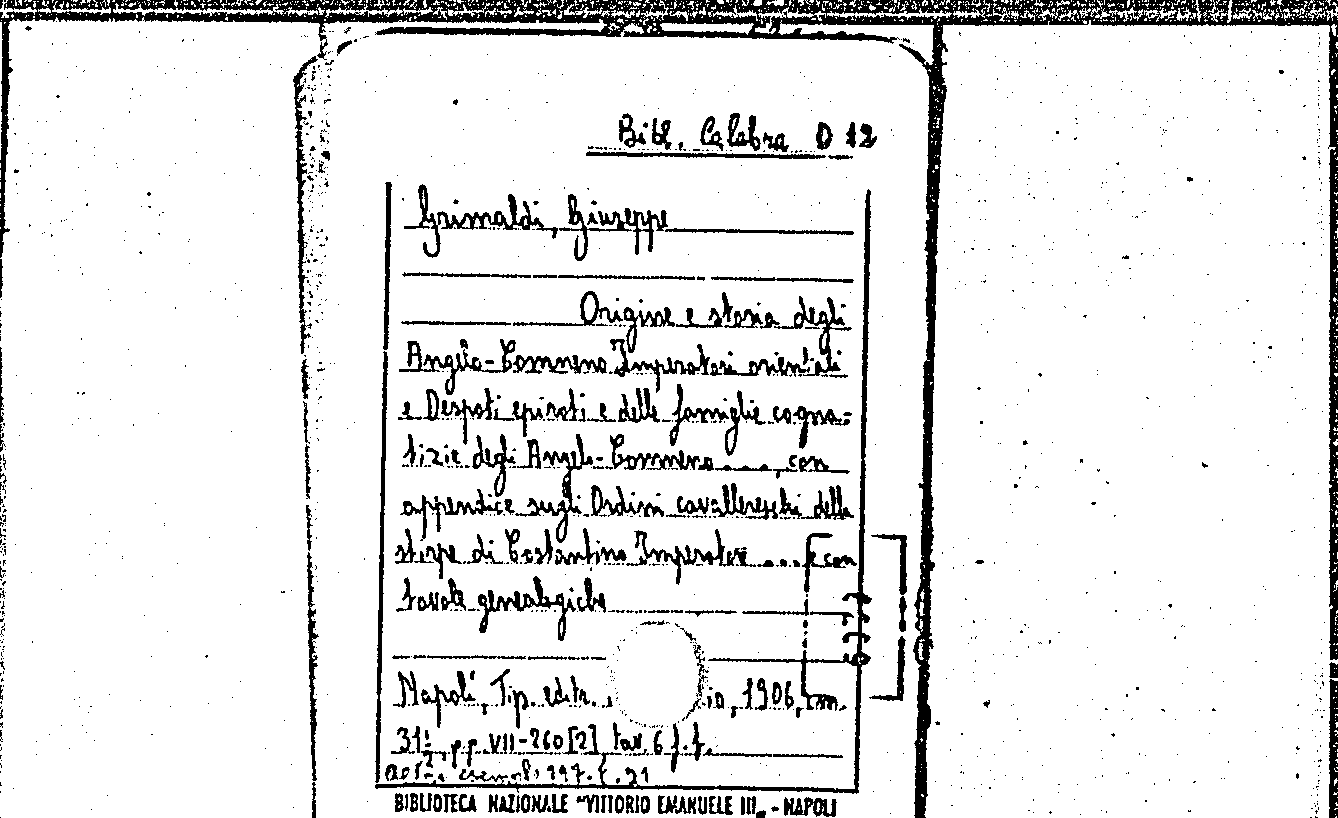 Bibl. Calabra D 12
Grimaldi, Giuseppe
Origine e storia degli
Angelo-Comneno Imperatori orientali
e Despoti epiroti e delle famiglie cogna=
tizie degli Angelo-Comneno ...., con
appendice sugli Ordini cavallereschi della
stirpe di Costantino Imperatore .... e con
tavole genealogiche
Napoli, Tip. editr. io, 1906, in.
31: pp. VII-260 [2], tav. 6 f.f.
197. C. 21
BIBLIOTECA NAZIONALE "VITTORIO EMANUELE III„ - NAPOLI